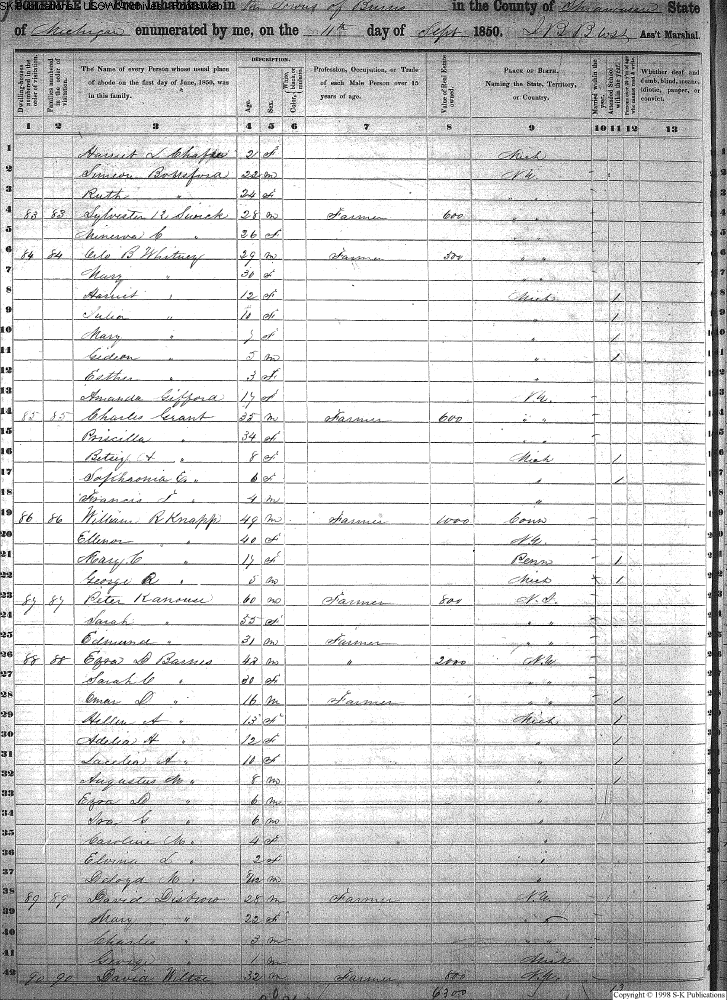 Free Inhabitants in The Town of Burns in the County of Shiawassee State
of Michigan enumerated by me, on the 11th day of Sept 1850. Ass't Marshal.
DESCRIPTION.
Dwelling-houses numbered in the order of visitation. Families numbered in the order of visitation. The Name of every Person whose usual place of abode on the first day of June, 1850, was in this family. Age. Sex. Color, Profession, Occupation, or Trade of each Male Person over 15 years of age. Value of Real Estate owned. PLACE OF BIRTH. Naming the State, Territory, or Country. Married within the year. Attended School within the year. Whether deaf and dumb, blind, insane, idiotic, pauper, or convict.
1 2 3 4 5 6 7 8 9 10 11 12 13
1 Harriet L 2 f Mich
2 Simeon Botsford 22 m N.Y.
3 Ruth " 24 f " "
4 83 83 Sylvester 28 m Farmer 600 " "
5 Minerva C " 26 f " "
6 84 84 B Whitney 29 m Farmer 500 " "
7 Mary " 30 f " "
8 Harriet " 12 f Mich 1
9 Julia " 10 f " 1
10 Mary " 7 f " 1
11 Gideon " 5 m " 1
12 Esther " 3 f "
13 Amanda Gifford 17 f N.Y.
14 85 85 Charles Grant 35 m Farmer 600 " "
15 Priscilla " 34 f " "
16 Betsy A " 8 f Mich 1
17 Sophronia E " 6 f " 1
18 Francis " 4 m "
19 86 86 William R Knapp 49 m Farmer 1000 Conn
20 Ellenor " 40 f N.Y.
21 Mary C " 17 f Penn 1
22 George R " 5 m Mich 1
23 87 87 Peter Kanouse 60 m Farmer 800 N.J.
24 Sarah " 55 f " "
25 Edmund " 31 m Farmer " "
26 88 88 Ezra D Barnes 43 m " 2000 N.Y.
27 Sarah C " 30 f " "
28 Omar D " 16 m Farmer " " 1
29 Hellen A " 13 f Mich 1
30 Adelia H " 12 f " 1
31 A " 10 f " 1
32 Augustus M " 8 m " 1
33 Ezra D " 6 m "
34 Ira G " 6 m "
35 Caroline M " 4 f "
36 Elvira L " 2 f "
37 M " "
38 89 89 David Disbrow 28 m Farmer N.Y.
39 Mary " 22 f " "
40 Charles " 3 m " "
41 George " 1 m Mich
42 90 90 David Wiltse 32 m Farmer 800 N.Y.
6300
Copyright © 1998 S-K Publications